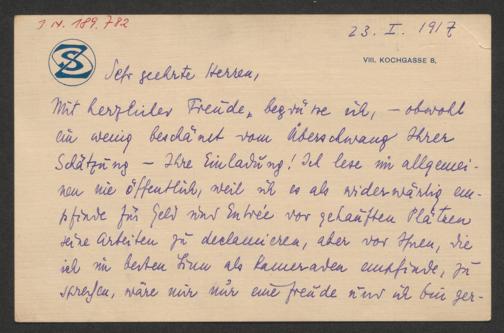 I.N. 189.782
23. I. 1917
SZ
VIII. KOCHGASSE 8,
Sehr geehrte Herren,
Mit herzlicher Freude, begrüsse ich, – obwohl
ein wenig beschämt vom Überschwang Ihrer
Schätzung – Ihre Einladung! Ich lese im allgemei-
nen nie öffentlich, weil ich es als widerwärtig em-
pfinde für Geld und Entrée vor gekauften Plätzen
seine Arbeiten zu declamieren, aber vor Ihnen, die
ich im besten Sinn als Kameraden empfinde, zu
sprechen, wäre mir nur eine Freude und ich bin ger-